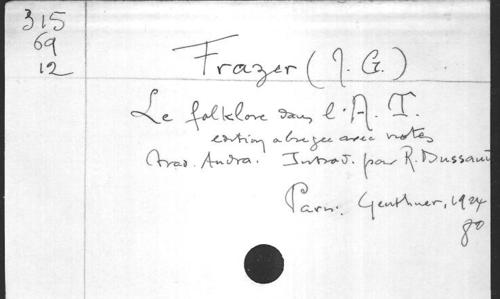 315
69
12
Frazer (J. G.)
Le folklore dans l'A. T.
edition abregee avec notes
trad. Audra. Introd. par R. Dussaud
Paris. Geuthner, 1924
8º